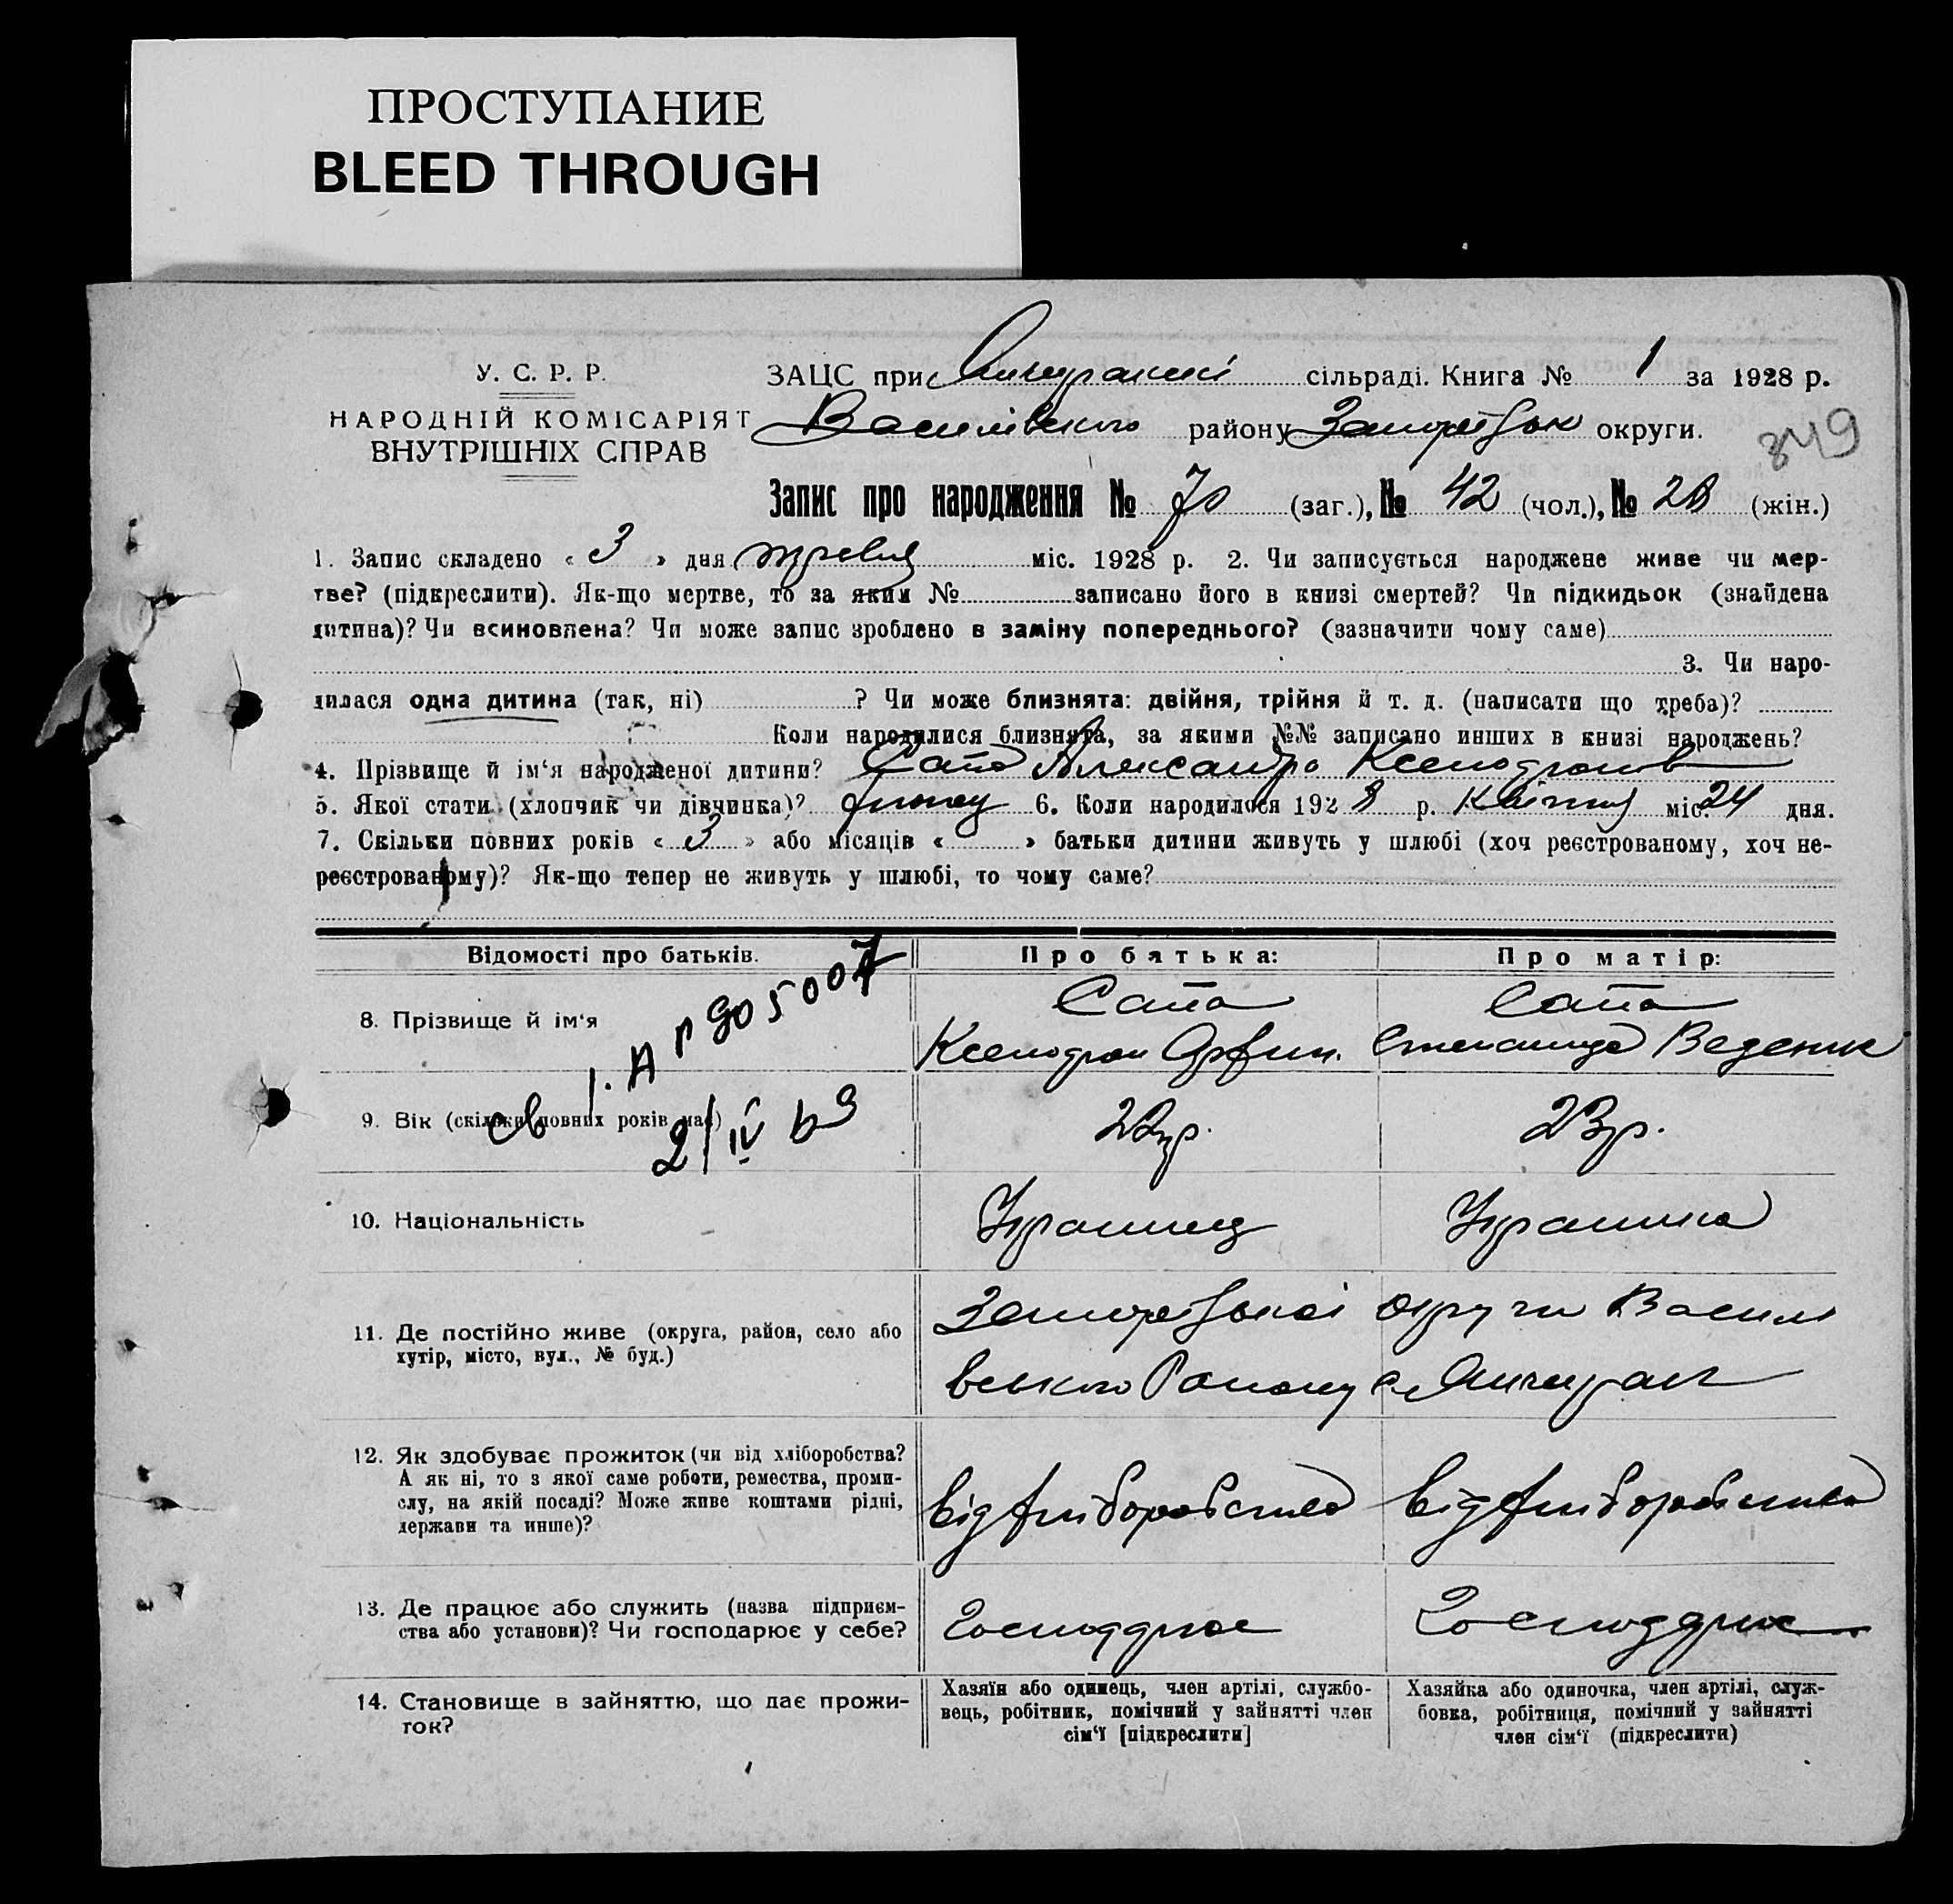 ПРОСТУПАНИЕ
BLEED THROUGH
У. С. Р. Р.
НАРОДНІЙ КОМІСАРІЯТ
ВНУТРІШНІХ СПРАВ
ЗАЦС при сільраді. Книга № 1 за 1928 р.
Василівського району округи.
349
Запис про народження № 70 (заг.), № 42 (чол.), № 28 (жін.)
1. Запис складено « 3 » дня травня міс. 1928 р. 2. Чи записується народжене живе чи мер-
тве? (підкреслити). Як-що мертве, то за яким № записано його в книзі смертей? Чи підкидьок (знайдена
дитина)? Чи всиновлена? Чи може запис зроблено в заміну попереднього? (зазначити чому саме)
3. Чи наро-
дилася одна дитина (так, ні) ? Чи може близнята: двійня, трійня й т. д. (написати що треба)?
Коли народилися близнята, за якими №№ записано инших в книзі народжень?
4. Прізвище й ім‘я народженої дитини? Сапа Александр Ксенофонтов
5. Якої стати (хлопчик чи дівчинка)? 6. Коли народилося 1928 р. Квітня міс. 24 дня.
7. Скільки повних років « 3 » або місяців « » батьки дитини живуть у шлюбі (хоч реєстрованому, хоч не-
реєстрованому)? Як-що тепер не живуть у шлюбі, то чому саме?
Відомості про батьків. Про батька: Про матір:
8. Прізвище й ім‘я
Сапа Сапа
Ксенофон Степанида
9. Вік (скільки повних років має) 22 р. 23 р.
10. Національність Українец Українка
11. Де постійно живе (округа, район, село або
хутір, місто, вул., № буд.)
округи Василі
вського Району с.
12. Як здобуває прожиток (чи від хліборобства?
А як ні, то з якої саме роботи, ремества, проми-
слу, на якій посаді? Може живе коштами рідні,
держави та инше)?
від хліборобства від хліборобства
13. Де працює або служить (назва підприєм-
ства або установи)? Чи господарює у себе?
14. Становище в зайняттю, що дає прожи-
ток?
Хазяїн або одинець, член артілі, службо-
вець, робітник, помічний у зайнятті член
сім‘ї [підкреслити]
Хазяйка або одиночка, член артілі, служ-
бовка, робітниця, помічний у зайнятті
член сім‘ї (підкреслити)